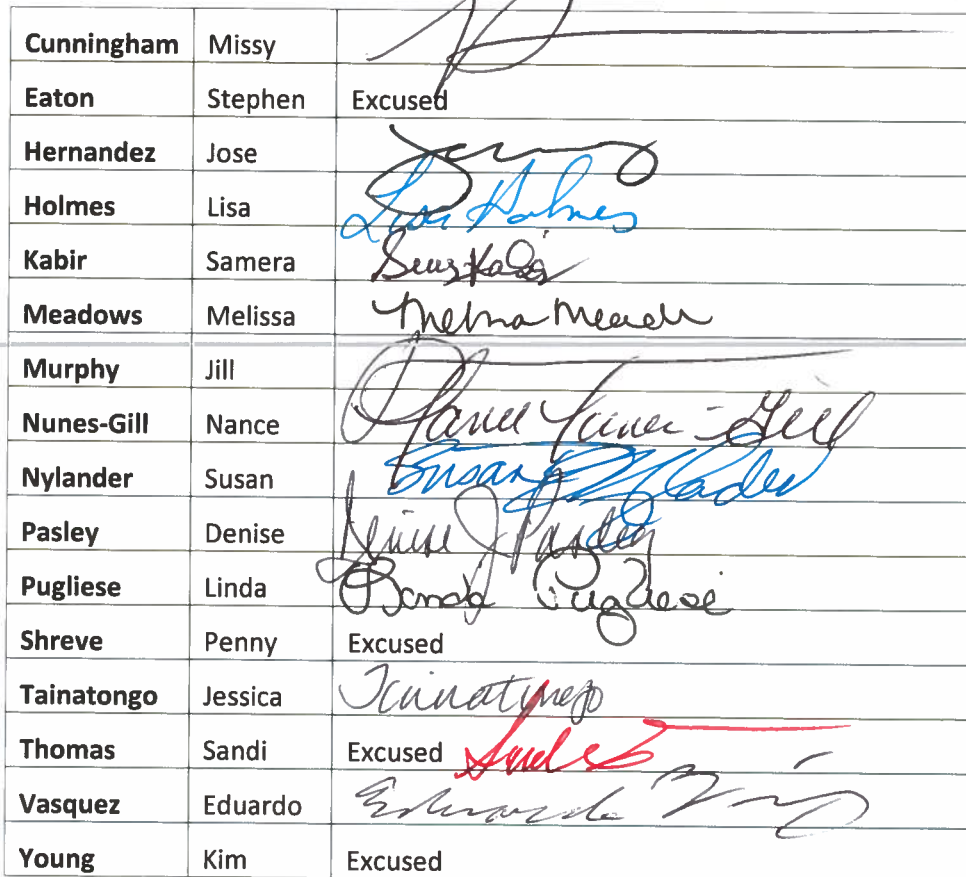 Cunningham Missy
Eaton Stephen Excused
Hernandez Jose
Holmes Lisa Lisa Holmes
Kabir Samera
Meadows Melissa
Murphy Jill
Nunes-Gill Nance Nance Nunes-Gill
Nylander Susan Susan Nylander
Pasley Denise Denise J Pasley
Pugliese Linda Linda Pugliese
Shreve Penny Excused
Tainatongo Jessica Tainatongo
Thomas Sandi Excused
Vasquez Eduardo Eduardo
Young Kim Excused